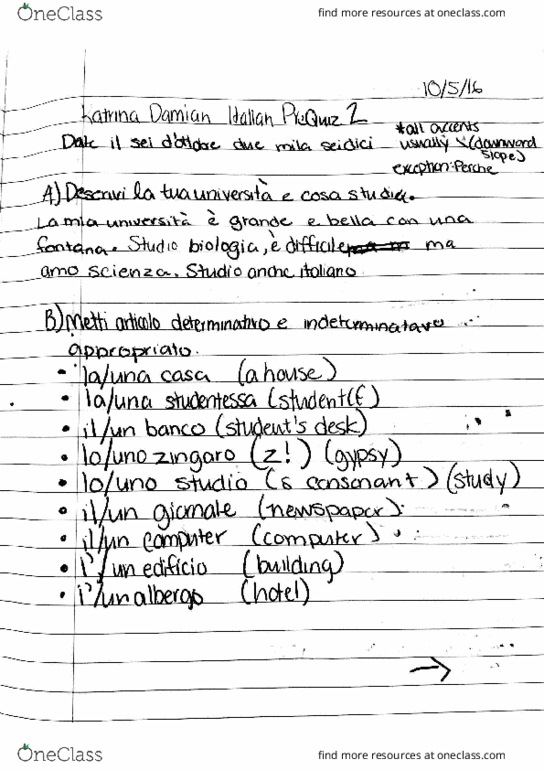 OneClass
find more resources at oneclass.com
10/5/16
Katrina Damian Italian PreQuiz 2
*all accents
Date il sei d'ottobre due mila seidici usually \ (downward
slope)
exception: Perche
A) Descrivi la tua università e cosa studia.
La mia università è grande e bella con una
fontana. Studio biologia, è difficile ma
amo scienza. Studio anche italiano
B) Metti articolo determinativo e indeterminatavo
appropriato.
• la/una casa (a house)
• la/una studentessa (student(f)
• il/un banco (student's desk)
• lo/uno zingaro (z!) (gypsy)
• lo/uno studio (s consonant) (study)
• il/un giornale (newspaper)
• il/un computer (computer)
• l'/un edificio (building)
• l'/un albergo (hotel)
→
OneClass
find more resources at oneclass.com